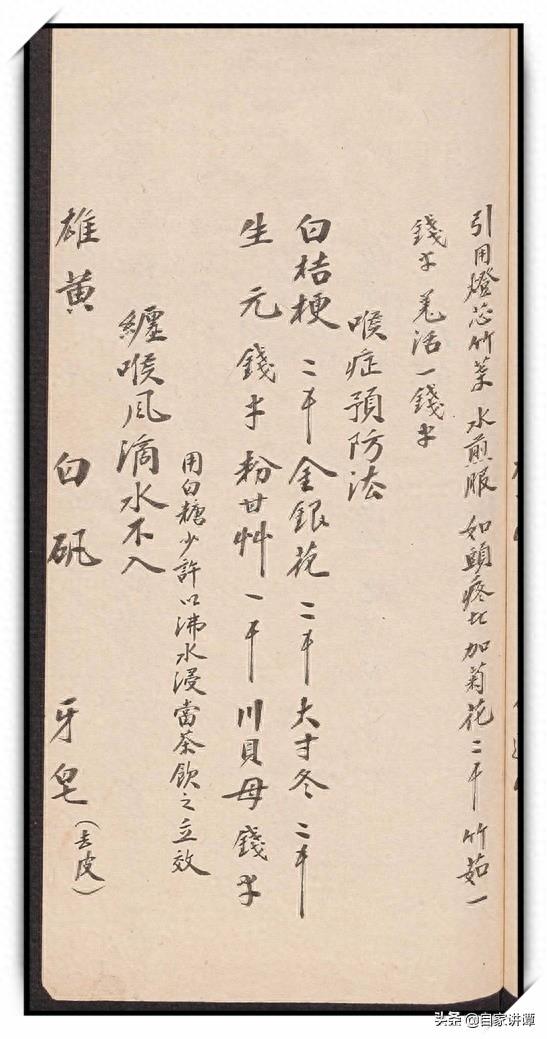 引用燈芯竹葉 水煎服 如頭疼比加菊花二千 竹茹一
錢半 羌活一錢半
喉症預防法
白桔梗 二千 金銀花 二千 大寸冬 二千
生元 錢半 粉甘艸 一千 川貝母 錢半
用白糖少許以沸水浸當茶飲之立效
纏喉风滴水不入
雄黄 白矾 牙皂(去皮)
头条 @自家讲谭